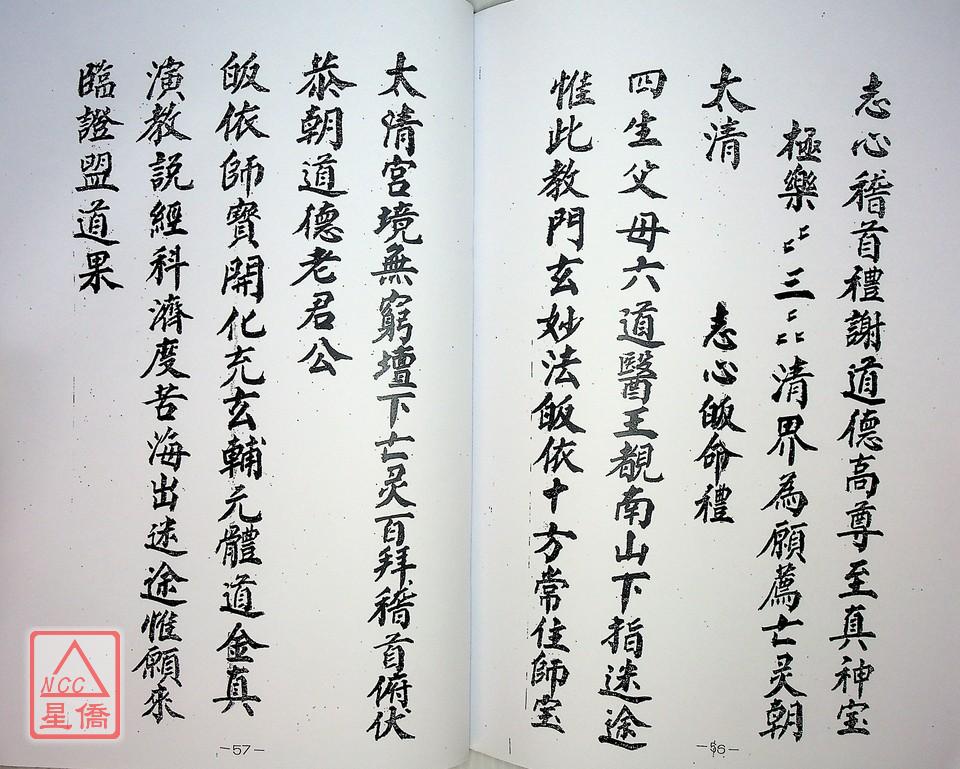 志心稽首禮謝道德高尊至真神宝
極樂〻〻三〻〻清界為願薦亡灵朝
太清 志心皈命禮
四生父母六道醫王覩南山下指迷途
惟此教門玄妙法皈依十方常住師宝
-56-
太清宮境無窮壇下亡灵百拜稽首俯伏
恭朝道德老君公
皈依師寶開化充玄輔元體道金真
演教説經科濟度苦海出迷途惟願來
臨證盟道果
-57-
NCC
星僑